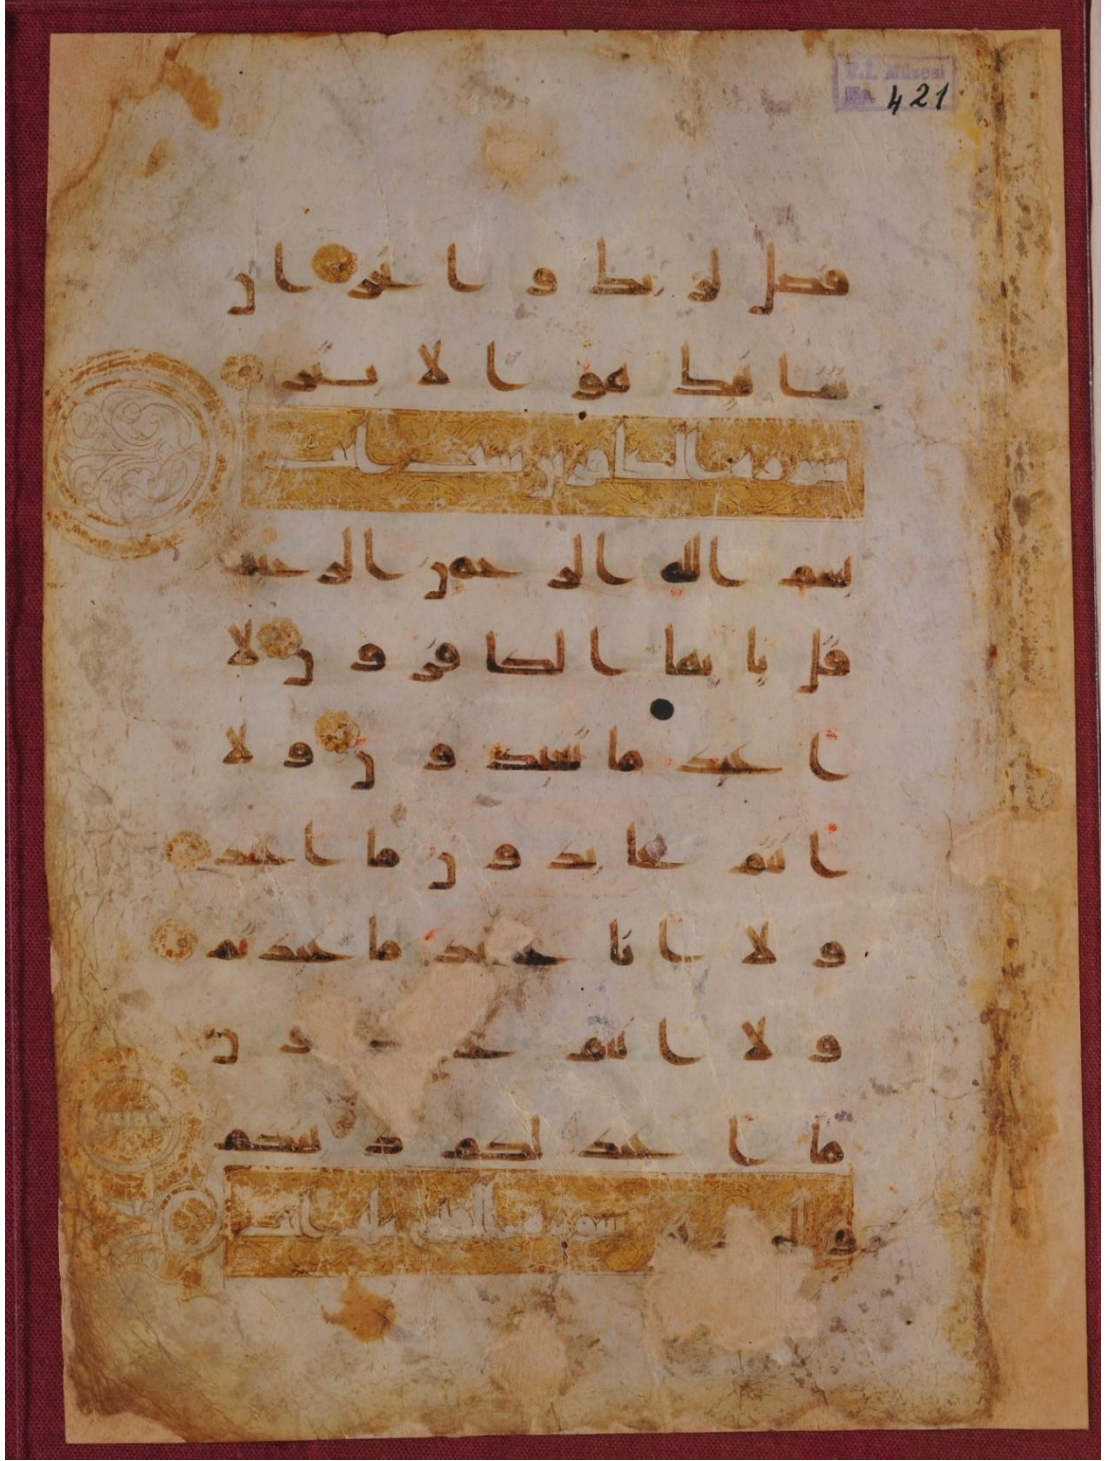 Müzesi
421
فصل لربك وانحر ان
شانئك هو الابتر
سورة الكافرين ست ايات
بسم الله الرحمن الرحيم
قل يايها الكافرون لا
اعبد ما تعبدون ولا
انتم عابدون ما اعبد
ولا انا عابد ما عبدتم
ولا انتم عابدون
ما اعبد لكم دينكم
ولي دين سورة الفتح ثلث ايات